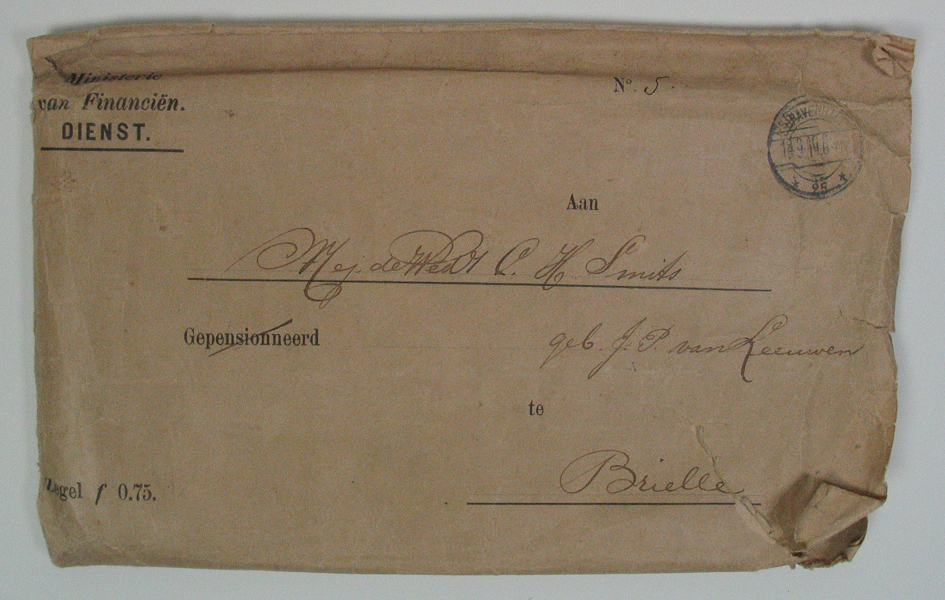 Ministerie
van Financiën.
DIENST.
Nº. 5.
Aan
Mej. de Wed. C. H. Smits
Gepensionneerd
geb. J. P. van Leeuwen
te
Brielle
Zegel f 0.75.